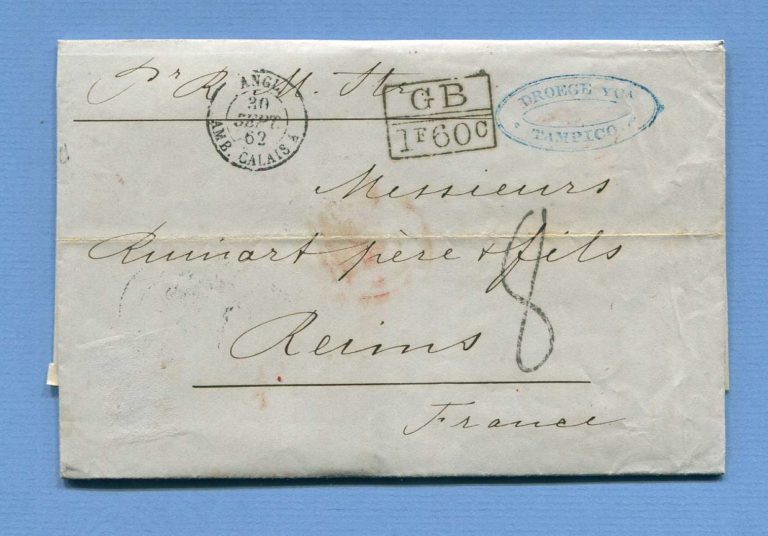 Pr R. M. Str
ANGL.
30
SEPT.
62
AMB. CALAIS
GB
1F60C
DROEGE Y CA
TAMPICO
Messieurs
Ruinart père & fils
8
Reims
France